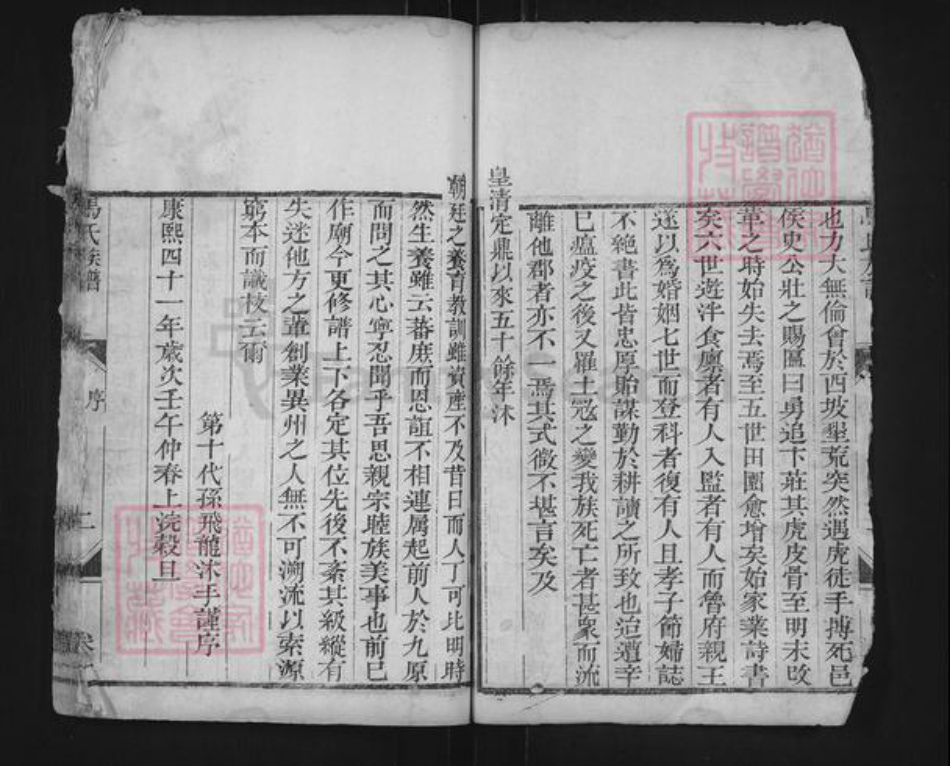 也力大無倫曾於西坡垦荒突然遇虎徒手搏死邑
侯史公壯之賜匾曰勇追卞莊其虎皮骨至明末改
革之時始失去焉至五世田園愈增矣始家業詩書
矣六世遊泮食廩者有人入監者有人而魯府親王
遂以爲婚姻七世而登科者復有人且孝子節婦誌
不絶書此皆忠厚貽謀勤於耕讀之所致也迨遭辛
巳瘟疫之後又罹土宼之變我族死亡者甚衆而流
離他郡者亦不一焉其式微不堪言矣及
皇清定鼎以來五十餘年沐
朝廷之養育教訓雖資產不及昔日而人丁可比明時
然生養雖云蕃庶而恩誼不相連属起前人於九原
而問之其心寧忍聞乎吾思親宗睦族美事也前巳
作廟今更修譜上下各定其位先後不紊其級縱有
失迷他方之輩創業異州之人無不可溯流以索源
窮本而識枝云爾
第十代孫飛龍沐手謹序
康熙四十一年歲次壬午仲春上浣穀旦
馬氏族譜
序
二
卷一